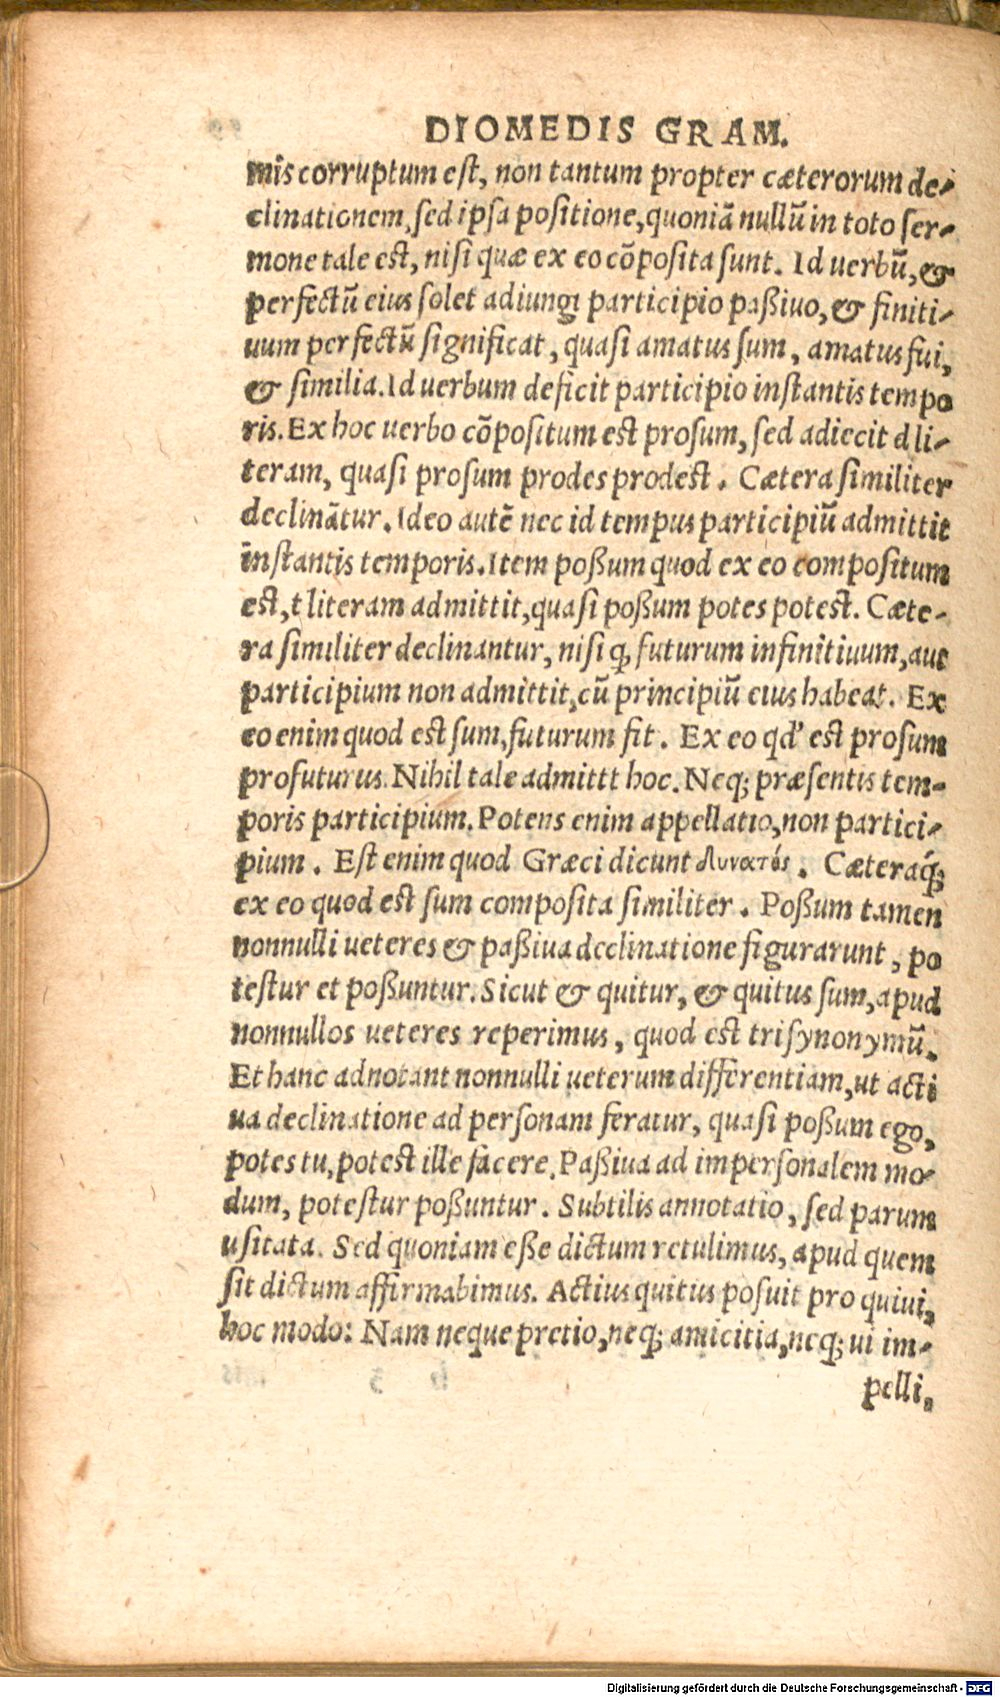 DIOMEDIS GRAM.
mis corruptum est, non tantum propter cæterorum de-
clinationem, sed ipsa positione, quoniā nullū in toto ser-
mone tale est, nisi quæ ex eo cōposita sunt. Id uerbū, &
perfectū eius solet adiungi participio paßiuo, & finiti-
uum perfectū significat, quasi amatus sum, amatus fui,
& similia. Id uerbum deficit participio instantis tempo
ris. Ex hoc uerbo cōpositum est prosum, sed adiecit d li-
teram, quasi prosum prodes prodest. Cætera similiter
declinātur. Ideo autē nec id tempus participiū admittit
instantis temporis. Item poßum quod ex eo compositum
est, t literam admittit, quasi poßum potes potest. Cæte-
ra similiter declinantur, nisi ꝙ futurum infinitiuum, aut
participium non admittit, cū principiū eius habeat. Ex
eo enim quod est sum, futurum fit. Ex eo qd' est prosum
profuturus. Nihil tale admittt hoc. Neq; præsentis tem-
poris participium. Potens enim appellatio, non partici-
pium. Est enim quod Græci dicunt δυνατός. Cæteraq́;
ex eo quod est sum composita similiter. Poßum tamen
nonnulli ueteres & paßiua declinatione figurarunt, po
testur et poßuntur. Sicut & quitur, & quitus sum, apud
nonnullos ueteres reperimus, quod est trisynonymū.
Et hanc adnotant nonnulli ueterum differentiam, ut acti
ua declinatione ad personam feratur, quasi poßum ego,
potes tu, potest ille facere. Paßiua ad impersonalem mo-
dum, potestur poßuntur. Subtilis annotatio, sed parum
usitata. Sed quoniam eße dictum retulimus, apud quem
sit dictum affirmabimus. Actius quitus posuit pro quiui,
hoc modo: Nam neque pretio, neq; amicitia, neq; ui im-
pelli,
Digitalisierung gefördert durch die Deutsche Forschungsgemeinschaft - DFG